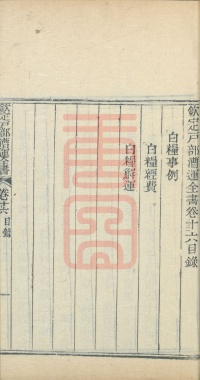 欽定戶部漕運全書卷十六目錄
白糧事例
白糧經費
白糧解運
欽定戶部漕運全書
卷十六
目錄